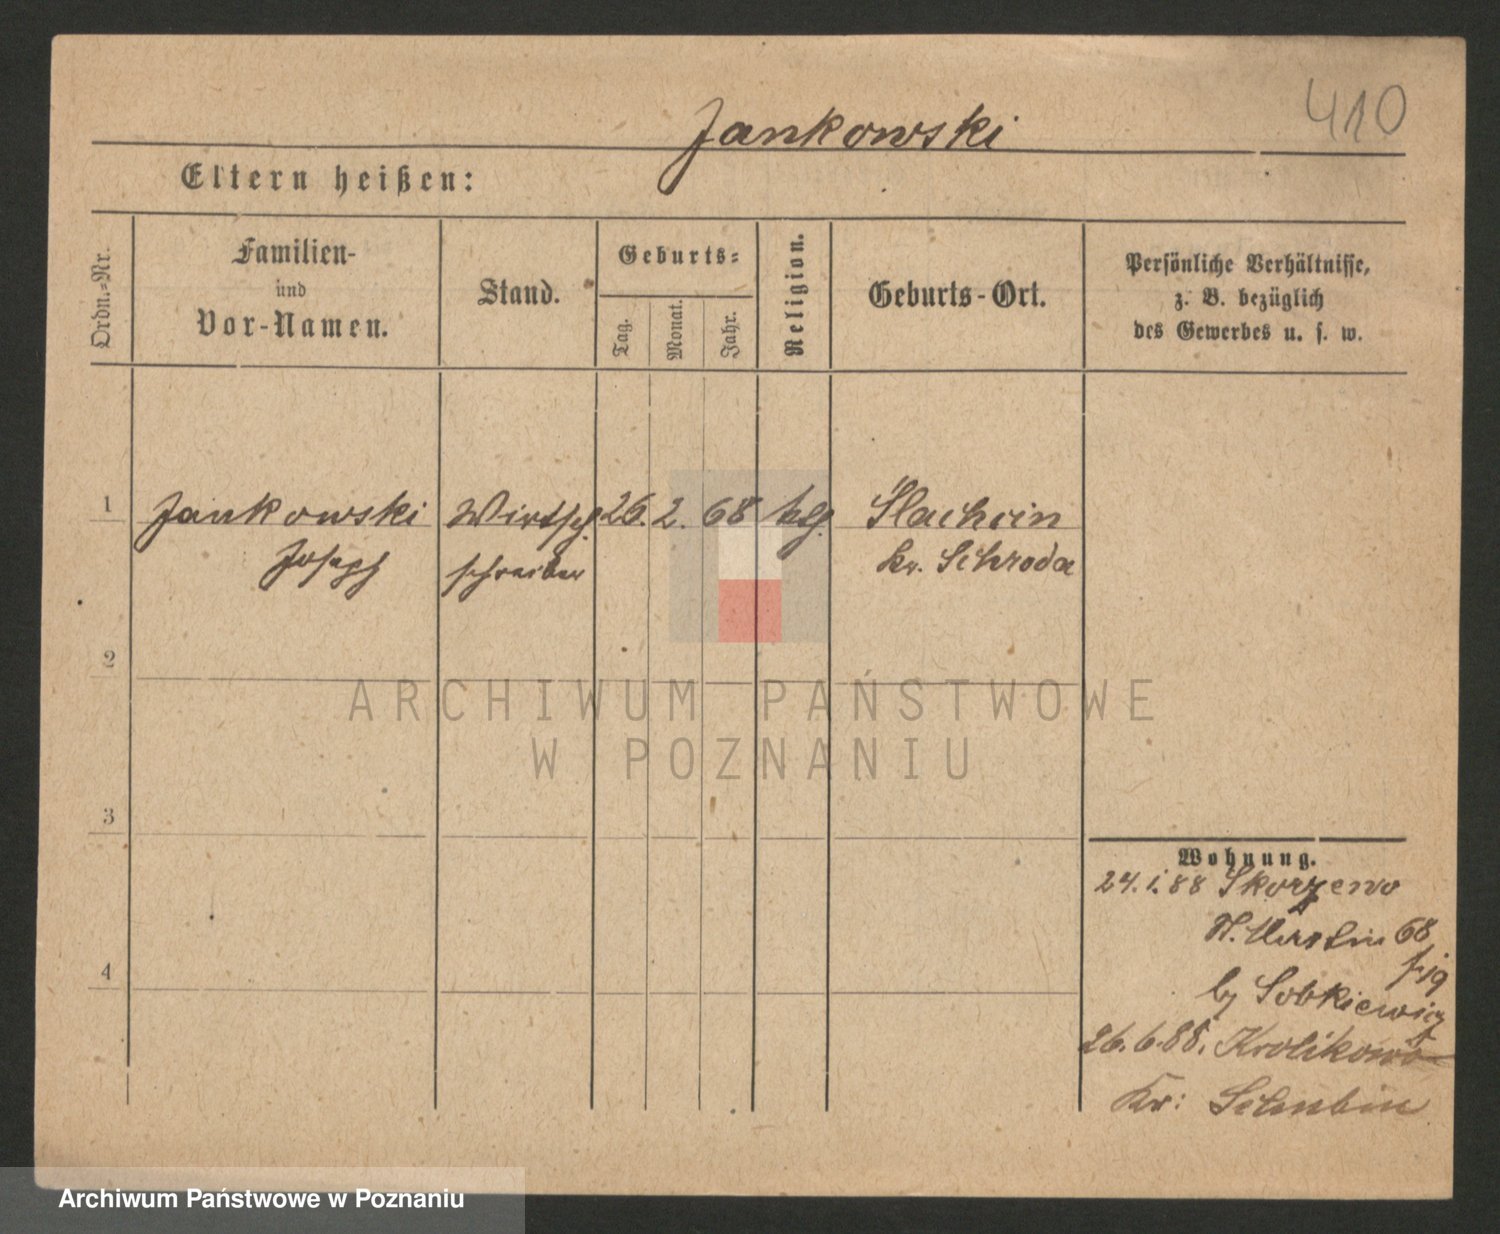 410
Jankowski
Eltern heißen:
Ordn.-Nr.
Familien-
und
Vor-Namen.
Stand.
Geburts-
Tag.
Monat.
Jahr.
Religion.
Geburts-Ort.
Persönliche Verhältnisse,
z. B. bezüglich
des Gewerbes u. s. w.
1 Jankowski Wirtsch. 26. 2. 68 klg. Slachcin
Joseph schreiber Kr. Schroda
2
3
4
Wohnung.
24.1.88 Skorzewo
St. Martin 68
by Sobkiewicz
26.6.88. Krolikowo
Kr: Schubin
ARCHIWUM PAŃSTWOWE
W POZNANIU
Archiwum Państwowe w Poznaniu